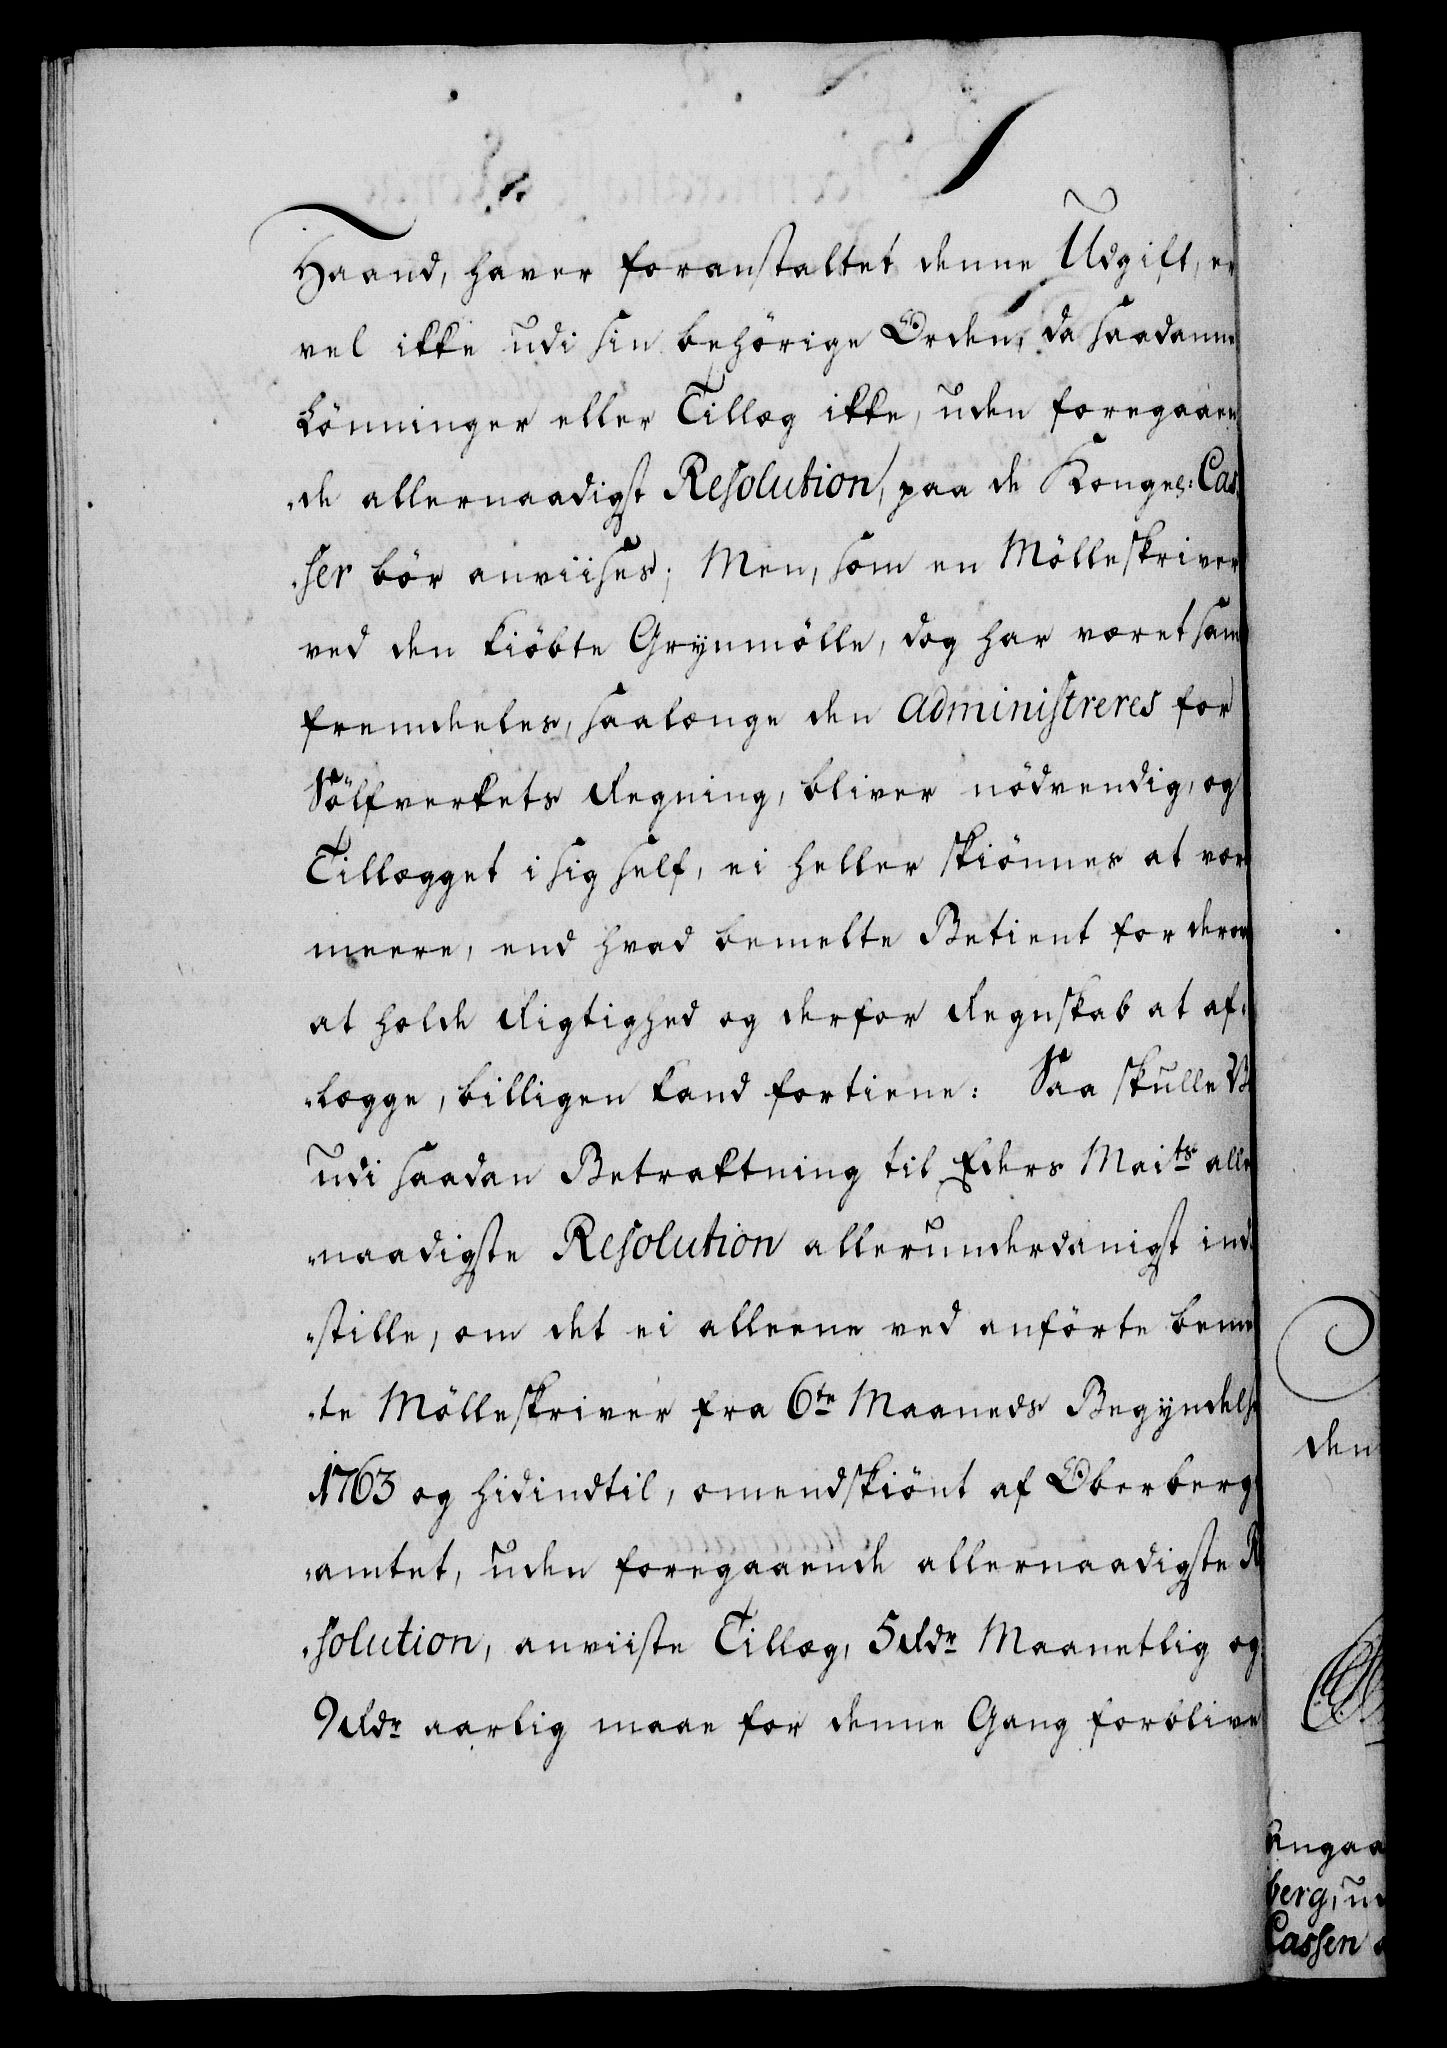 Haand, haver foranstaltet denne Udgift, er
vel ikke udi sin behörige Orden, da saadanne
Lönninger eller Tillæg ikke, uden foregaaen
de allernaadigst Resolution, paa de Kongel: Cas
ser bör anviises; Men, som en Mölleskriver
ved den kiöbte Grynmölle, dog har været samt
fremdeeles, saalænge den administreres for
Sölfverkets Regning, bliver nödvendig, og
Tillægget i sig self, ei heller skiönnes at vær
meere, end hvad bemelte Betient for derov
at holde Rigtighed og derfor Regnskab at af-
lægge, billigen kand fortiene: Saa skulle V
udi saadan Betraktning til Eders Maits aller
naadigste Resolution allerunderdanigst ind
stille, om det ei alleene ved anförte bemel
te Mölleskriver fra 6te Maaneds Begyndelse
1763 og hidindtil, omendskiönt af Oberberg
amtet, uden foregaaende allernaadigste R
solution, anviiste Tillæg, 5 Rdr Maanetlig og
9 Rdr aarlig maae for denne Gang forblive
den
angaa
berg, u
Cassen